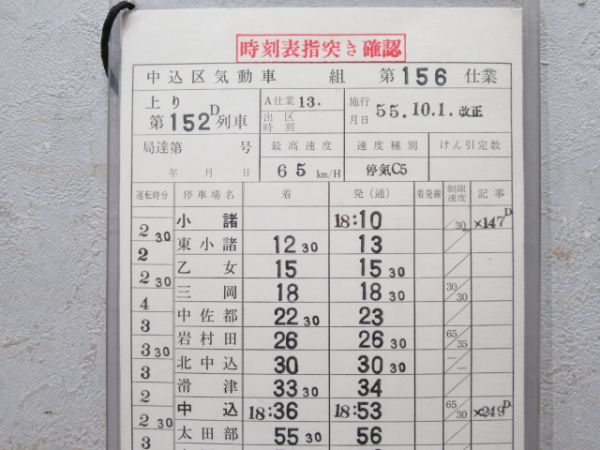 時刻表指突き確認
中込区気動車 組 第156仕業
上り
第152D列車
A仕業 13.
出区
時刻
施行
月日
55.10.1.改正
局達第 号
年 月 日
最高速度
65 km/H
速度種別
停気C5
けん引定数
運転時分 停車場名 着 発(通) 着発線 制限速度 記事
小諸 18:10 /30 ×147D
2 30
東小諸 12 30 13
2
乙女 15 15 30
2 30
三岡 18 18 30 30/30
4
中佐都 22 30 23
3
岩村田 26 26 30 65/35
3 30
北中込 30 30 30
3
滑津 33 30 34
2
中込 18:36 18:53 65/30 ×219D
2 30
太田部 55 30 56
3